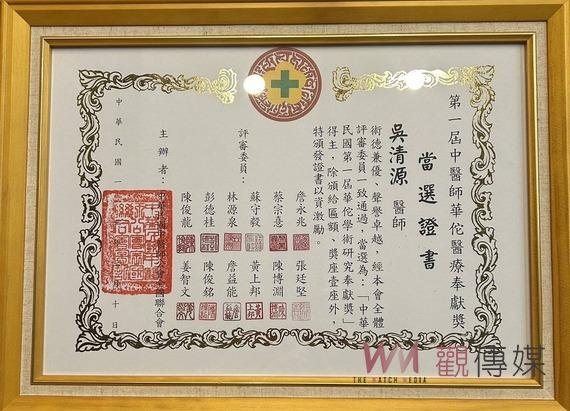 第一屆中醫師華佗醫療奉獻獎
當選證書
吳清源 醫師
術德兼優、聲譽卓越，經本會全體
評審委員一致通過，當選為：「中華
民國第一屆華佗學術研究奉獻獎」
得主，除頒給匾額、獎座壹座外，
特頒發證書以資激勵。
評審委員：
詹永兆 張廷堅
蔡宗憙 陳博淵
蘇守毅 黃上邦
林源泉 詹益能
彭德桂 陳俊銘
陳俊龍 姜智文
主辦者：
聯合會
中華民國一
十日
WM 觀傳媒
THE WATCH MEDIA